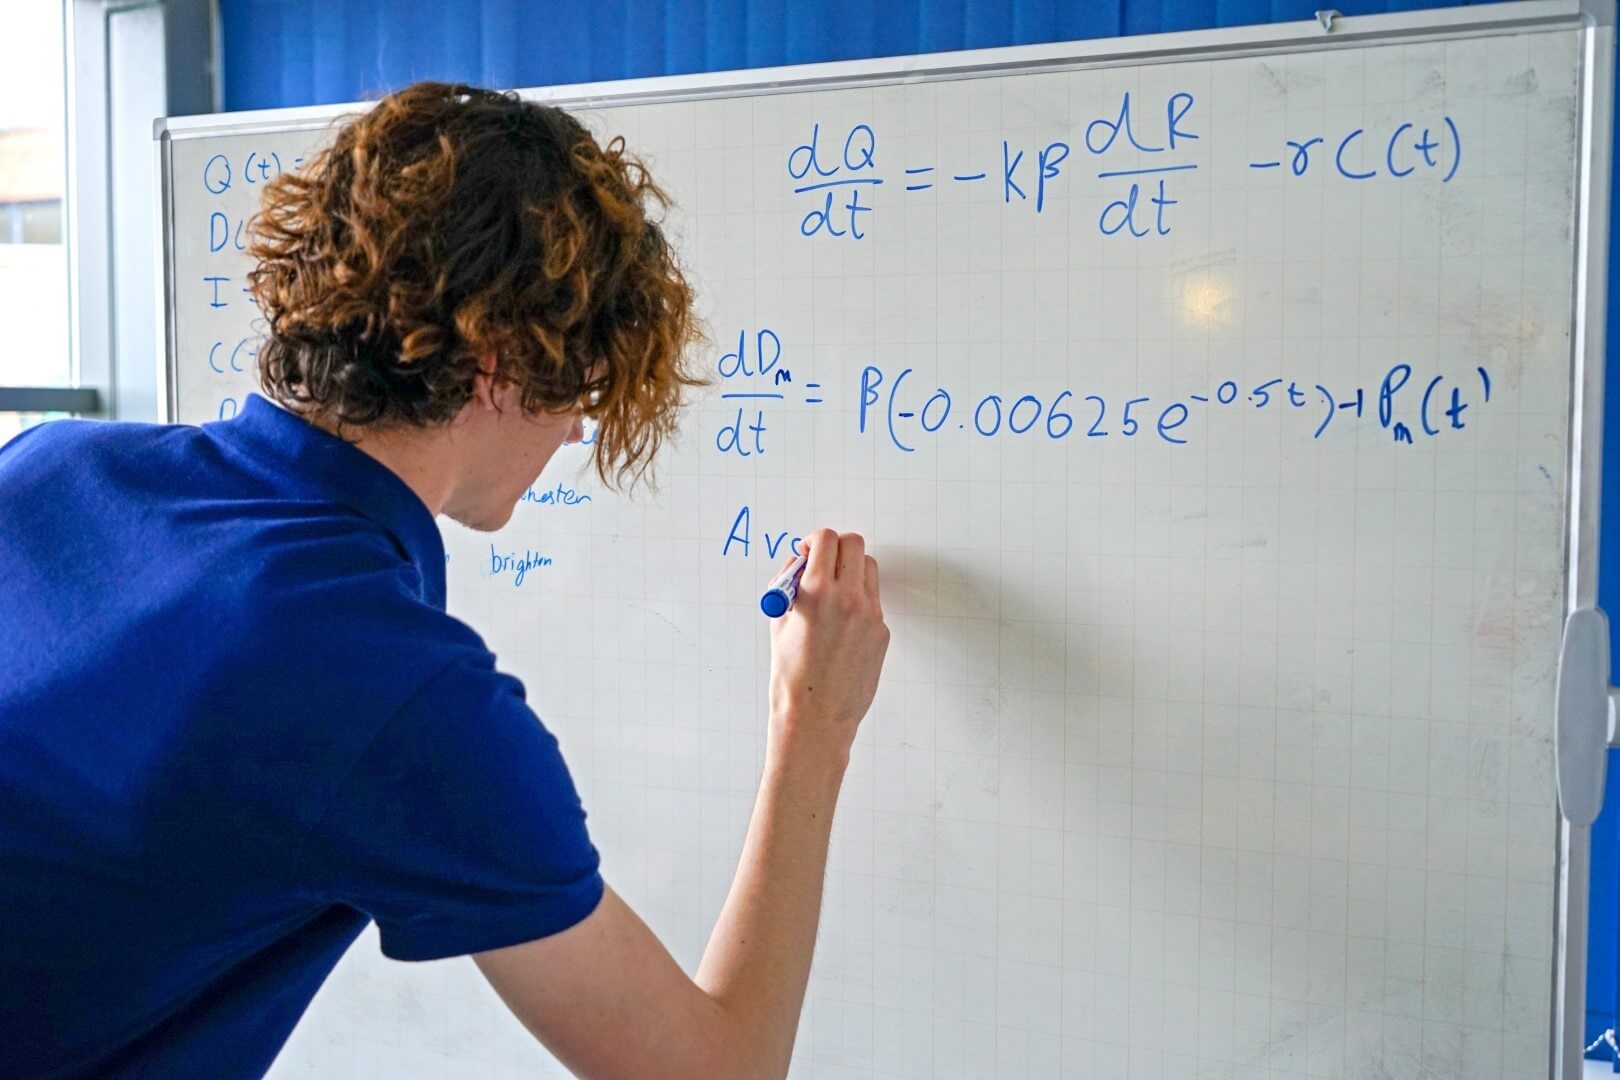 Q(t) =
D(
I =
C(t
dQ/dt = -kβ dR/dt - rC(t)
dDₘ/dt = β(-0.00625e^-0.5t) + Pₘ(t)
brighton
Av